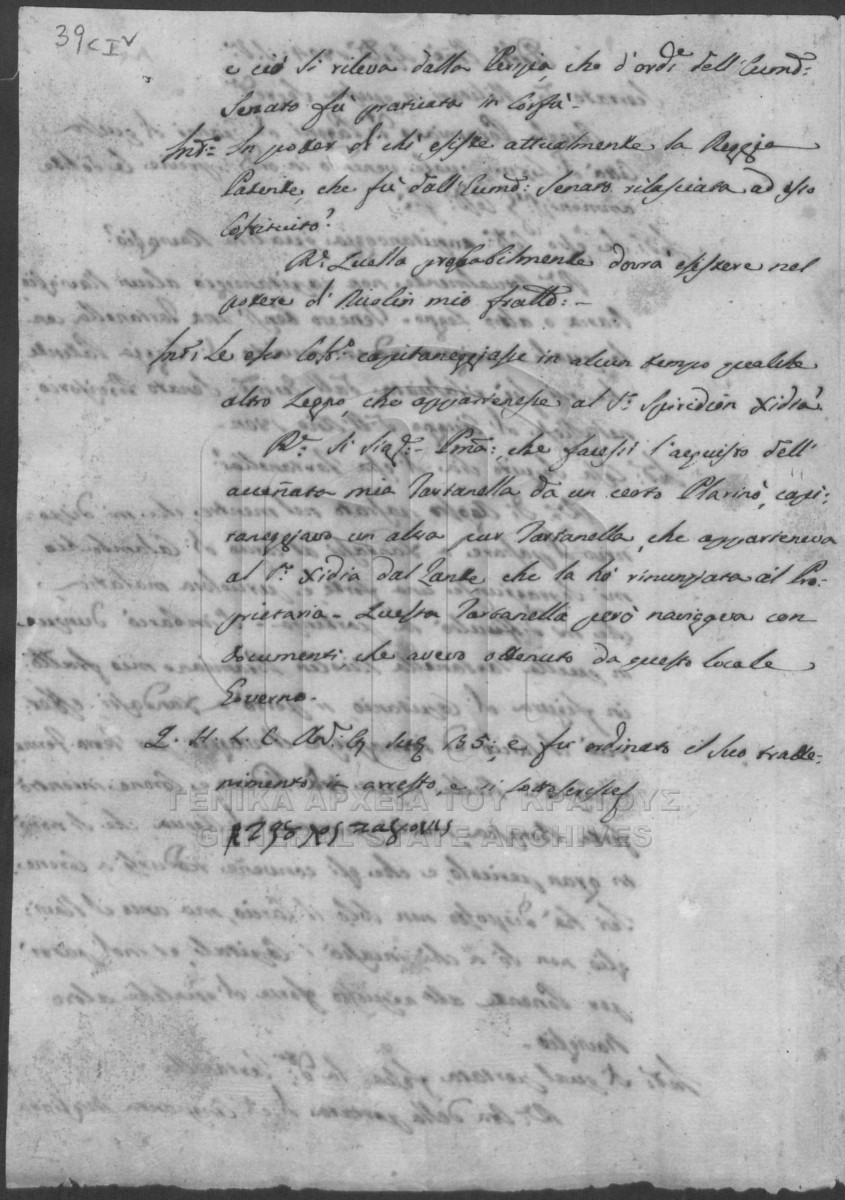 39 C I v
e ciò si rileva dalla Perizia, che d'ord:e dell'Eccmo:
Senato fù praticata in Corfù -
Int:o In poter di chi esiste attualmente la Reggia
Patente, che fù dall'Eccmo: Senato rilasciata ad esso
Costituito?
R:e Quella probabilmente dovrà esistere nel
potere di mio fratto: -
Int:i Se esso Cost:o capitaneggiasse in alcun tempo qualche
altro Legno, che appartenesse al S:r Spiridion Xidià?
R:e Si Sig:r Pma: che facessi l'acquisto dell'
accennata mia Tartanella da un certo Plarinò, capi:
taneggiavo un altra pur Tartanella, che apparteneva
al S:r Xidià dal Zante che la hò rinunziata al Pro:
prietario - Questa Tartanella però navigava con
documenti, che avevo ottenuto da questo locale
Governo -
Q. H. L. C. e fù ordinato il suo tratte:
nimento in arresto, e si sottoscrisse
ΓΕΝΙΚΑ ΑΡΧΕΙΑ ΤΟΥ ΚΡΑΤΟΥΣ
GENERAL STATE ARCHIVES